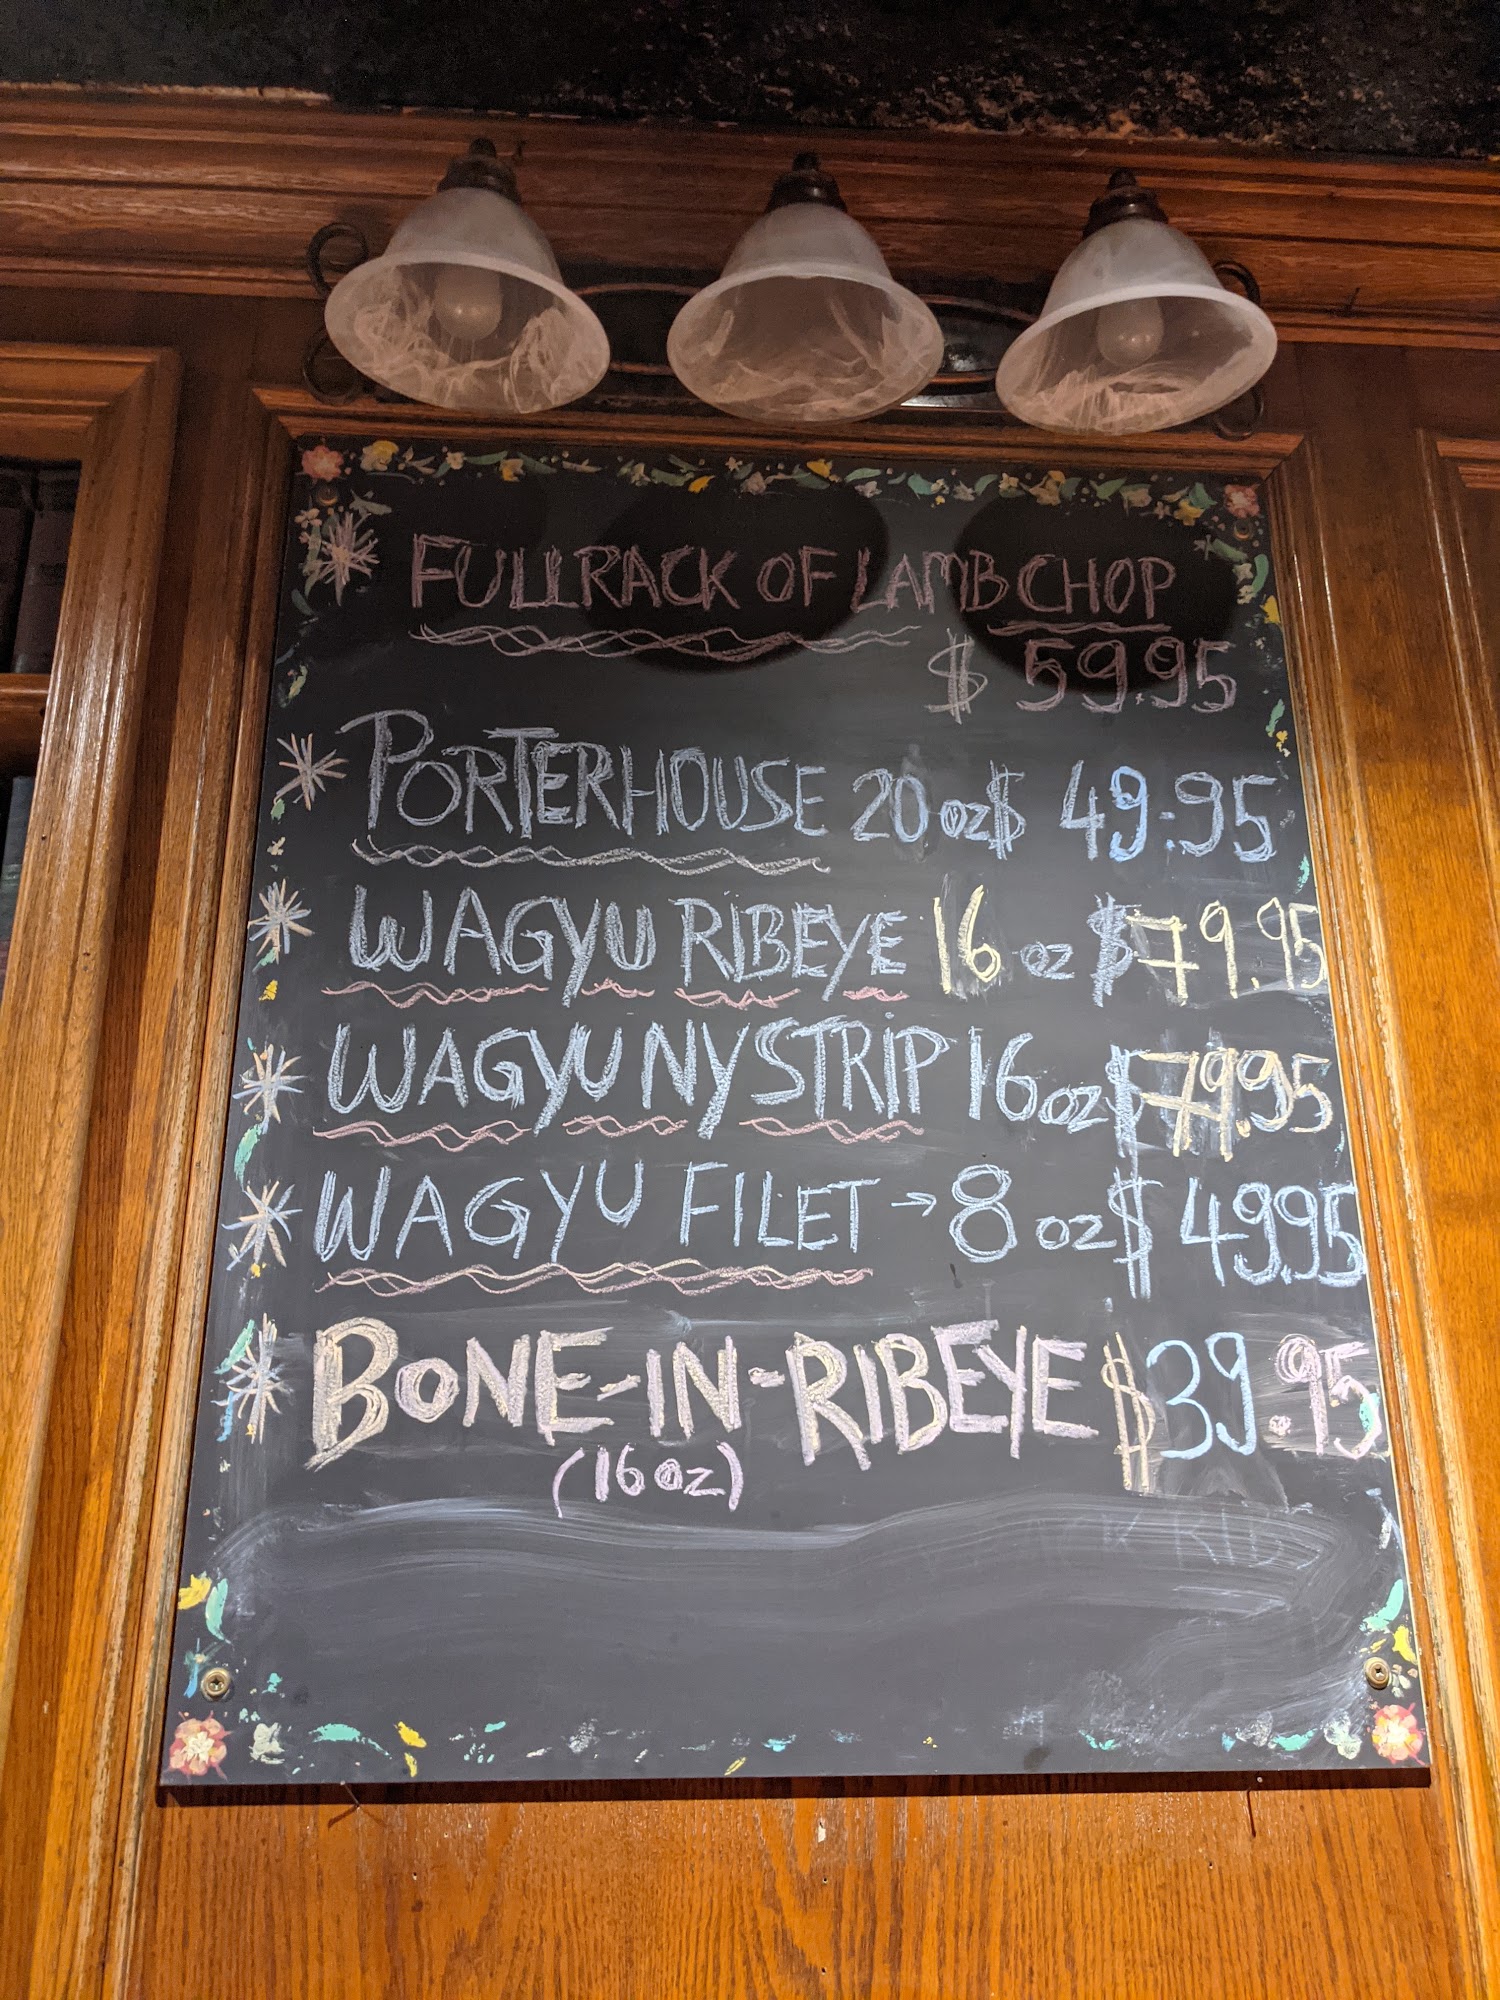 FULL RACK OF LAMB CHOP
$ 59.95
PORTERHOUSE 20 oz $ 49.95
WAGYU RIBEYE 16 oz $79.95
WAGYU NY STRIP 16oz $79.95
WAGYU FILET → 8 oz $ 49.95
BONE-IN-RIBEYE $39.95
(16oz)